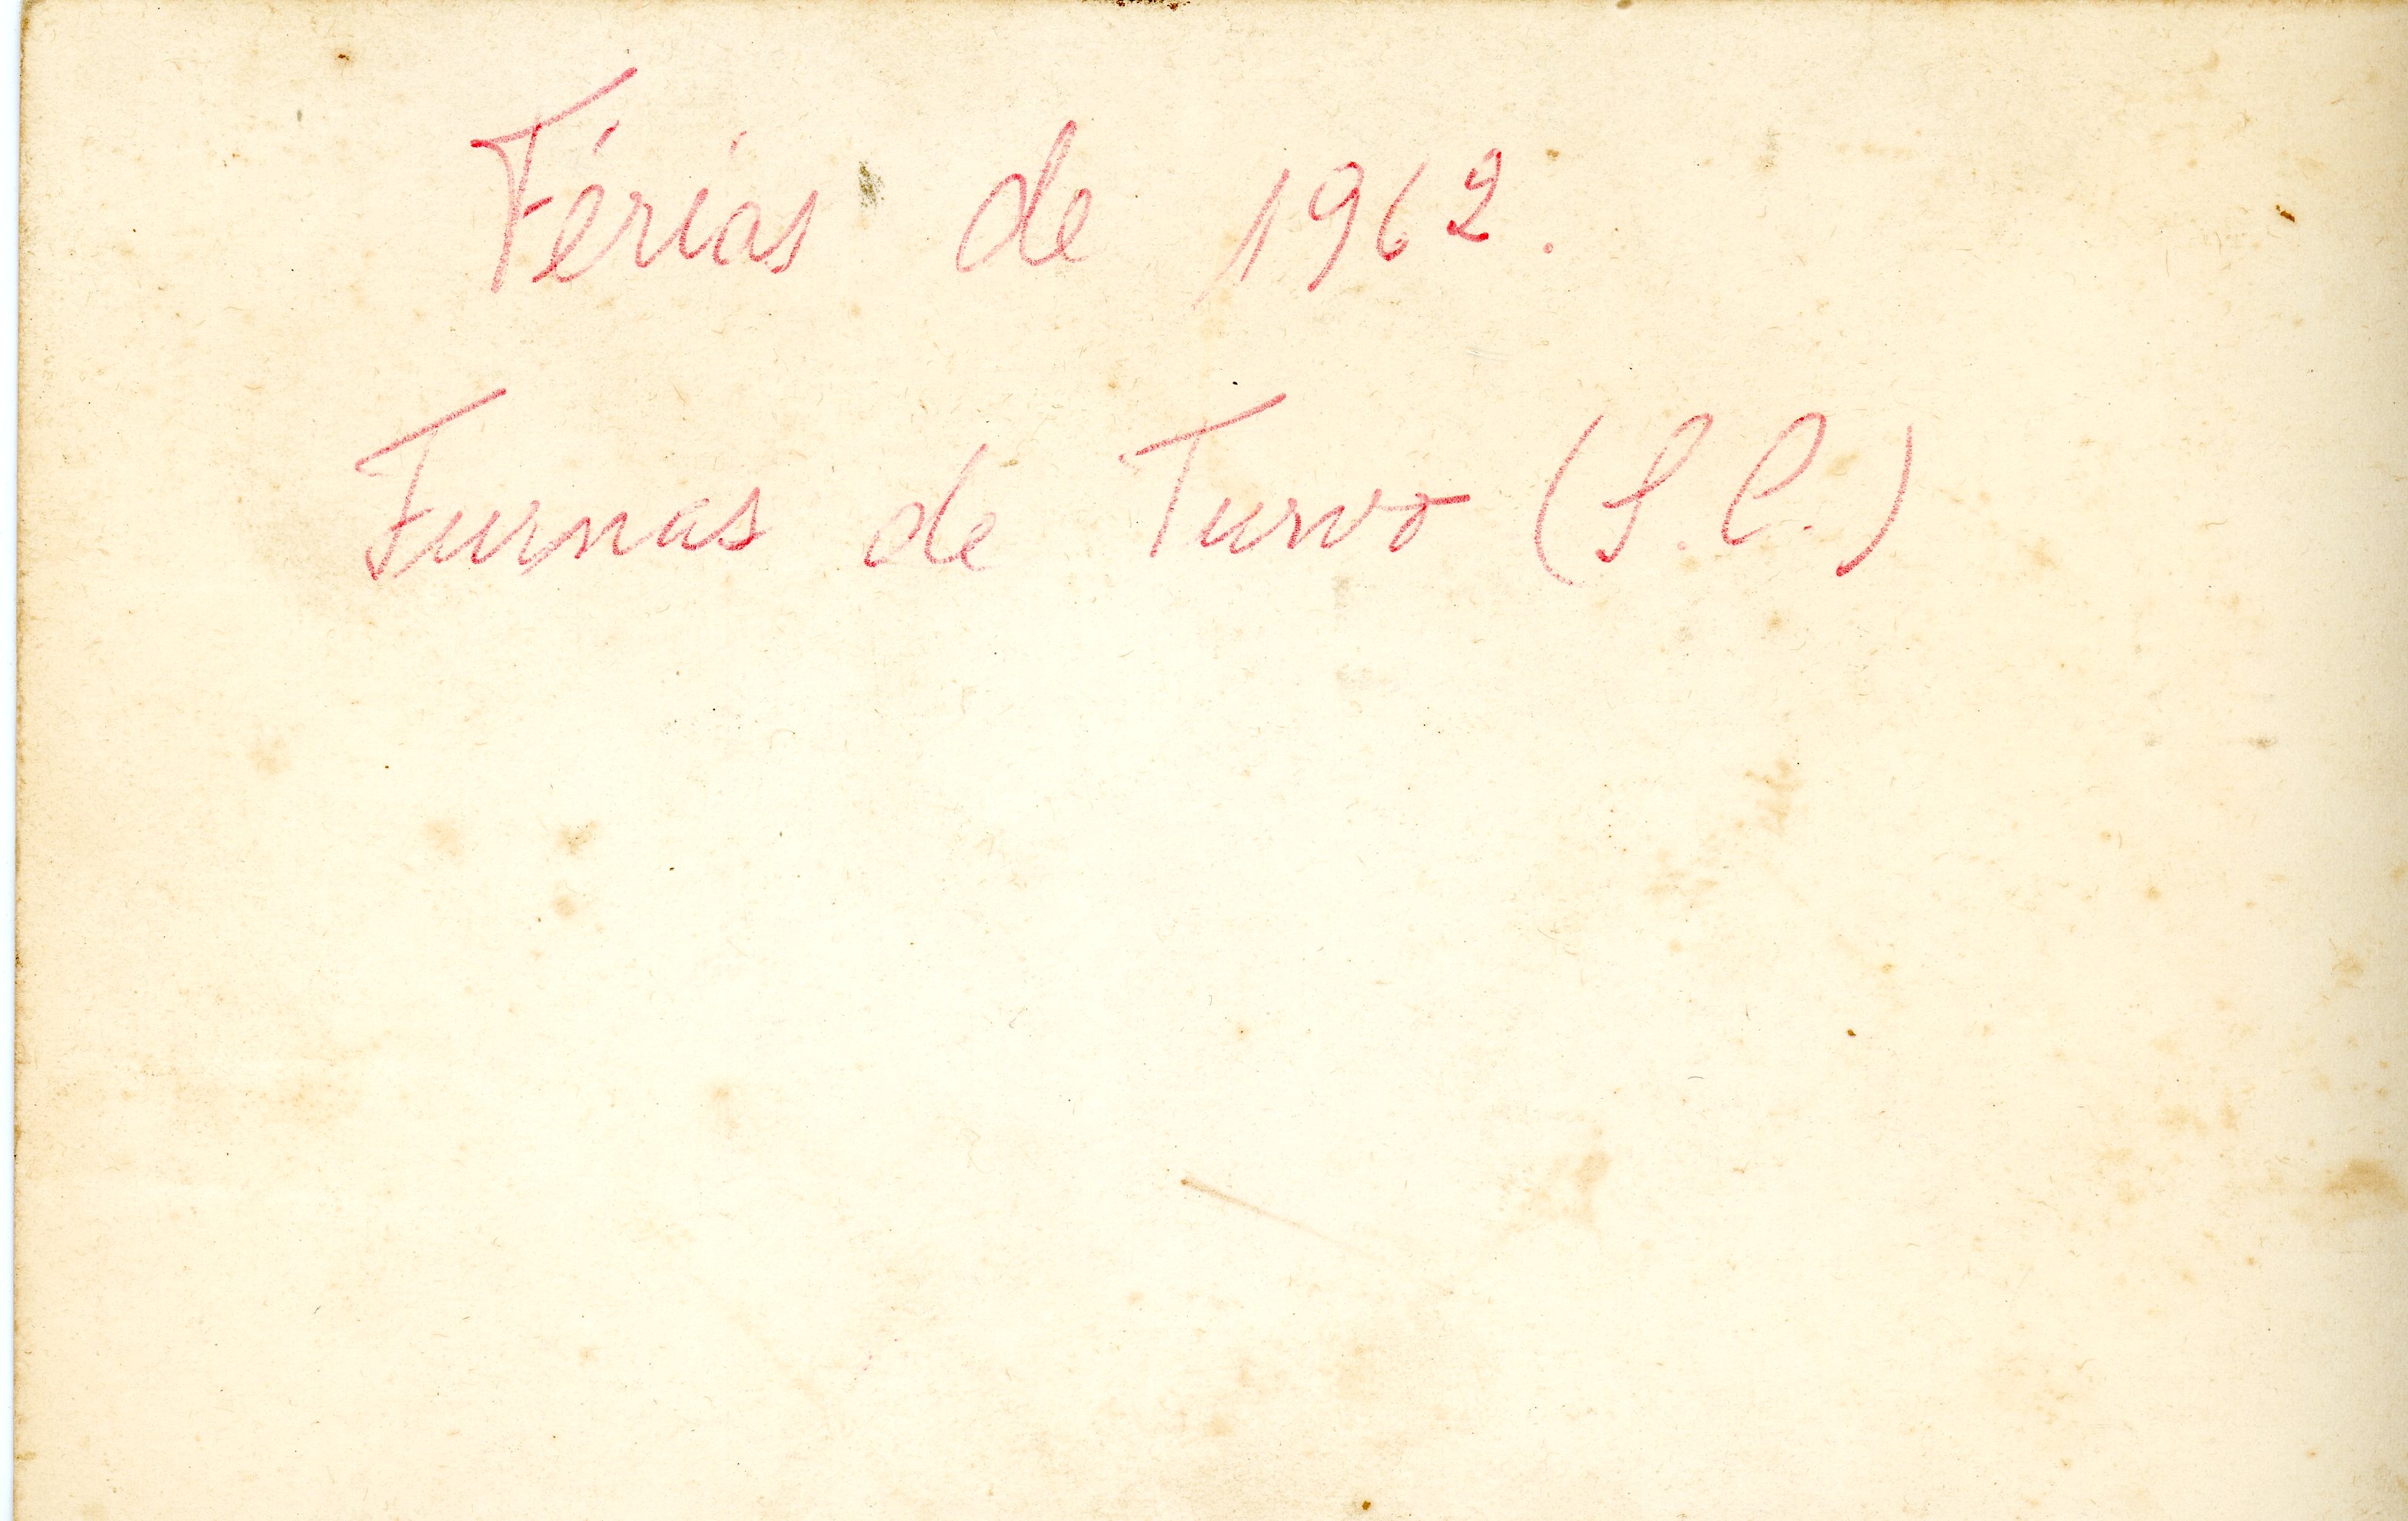 Férias de 1962.
Furnas de Turvo (S.C.)